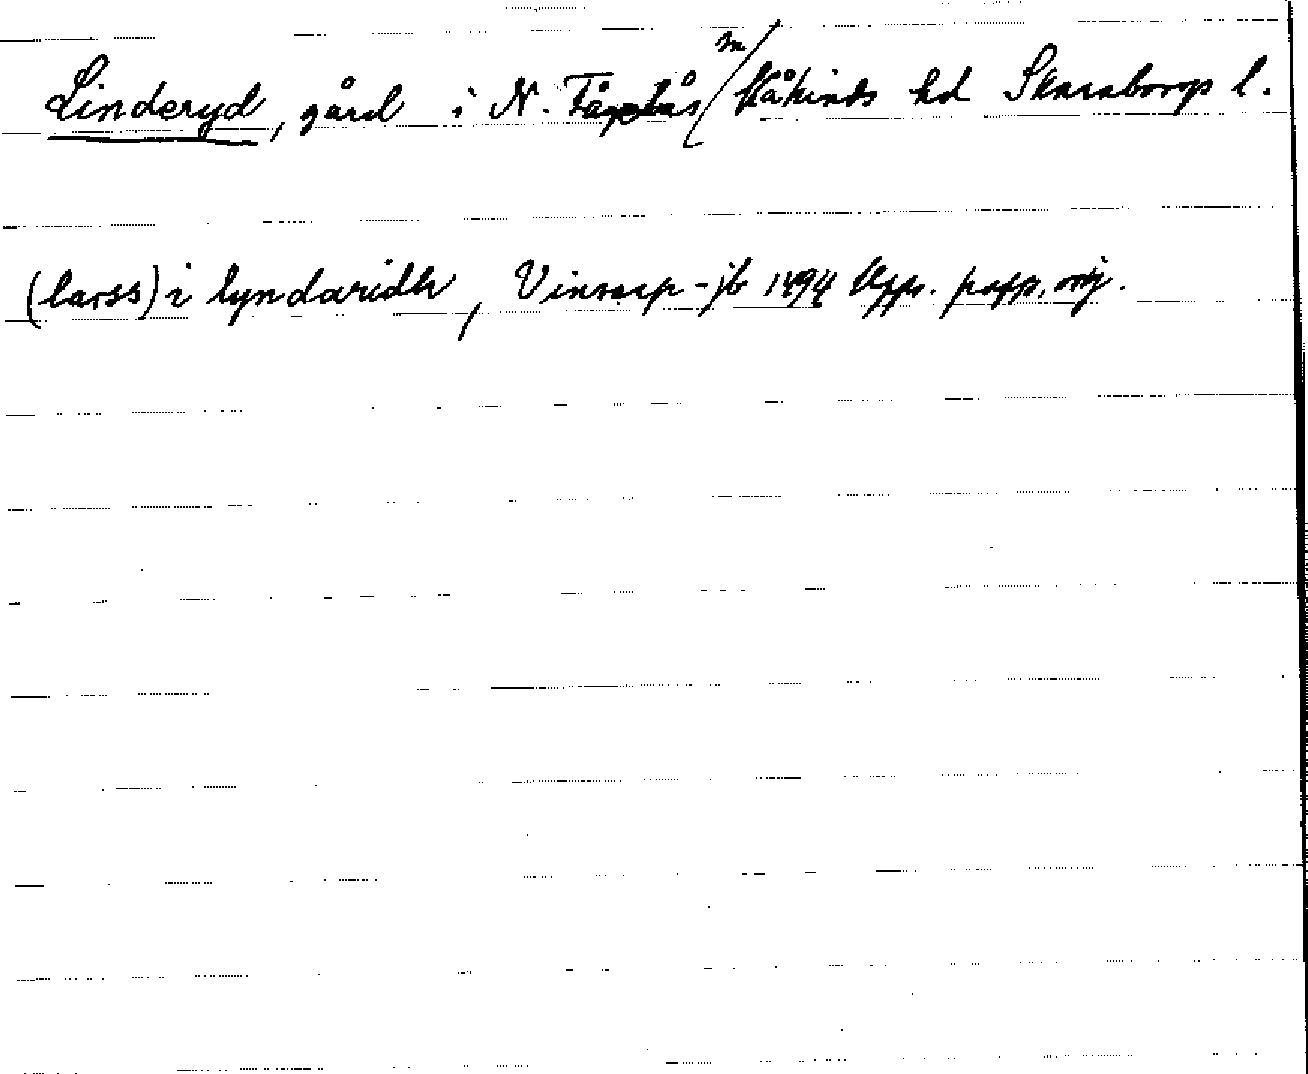 Linderyd, gård i N. Fågelås sn Kåkinds hd Skaraborgs l.
(larss) i lyndaridh, Vinsarp-jb 1494 Upps. pafp. orig.